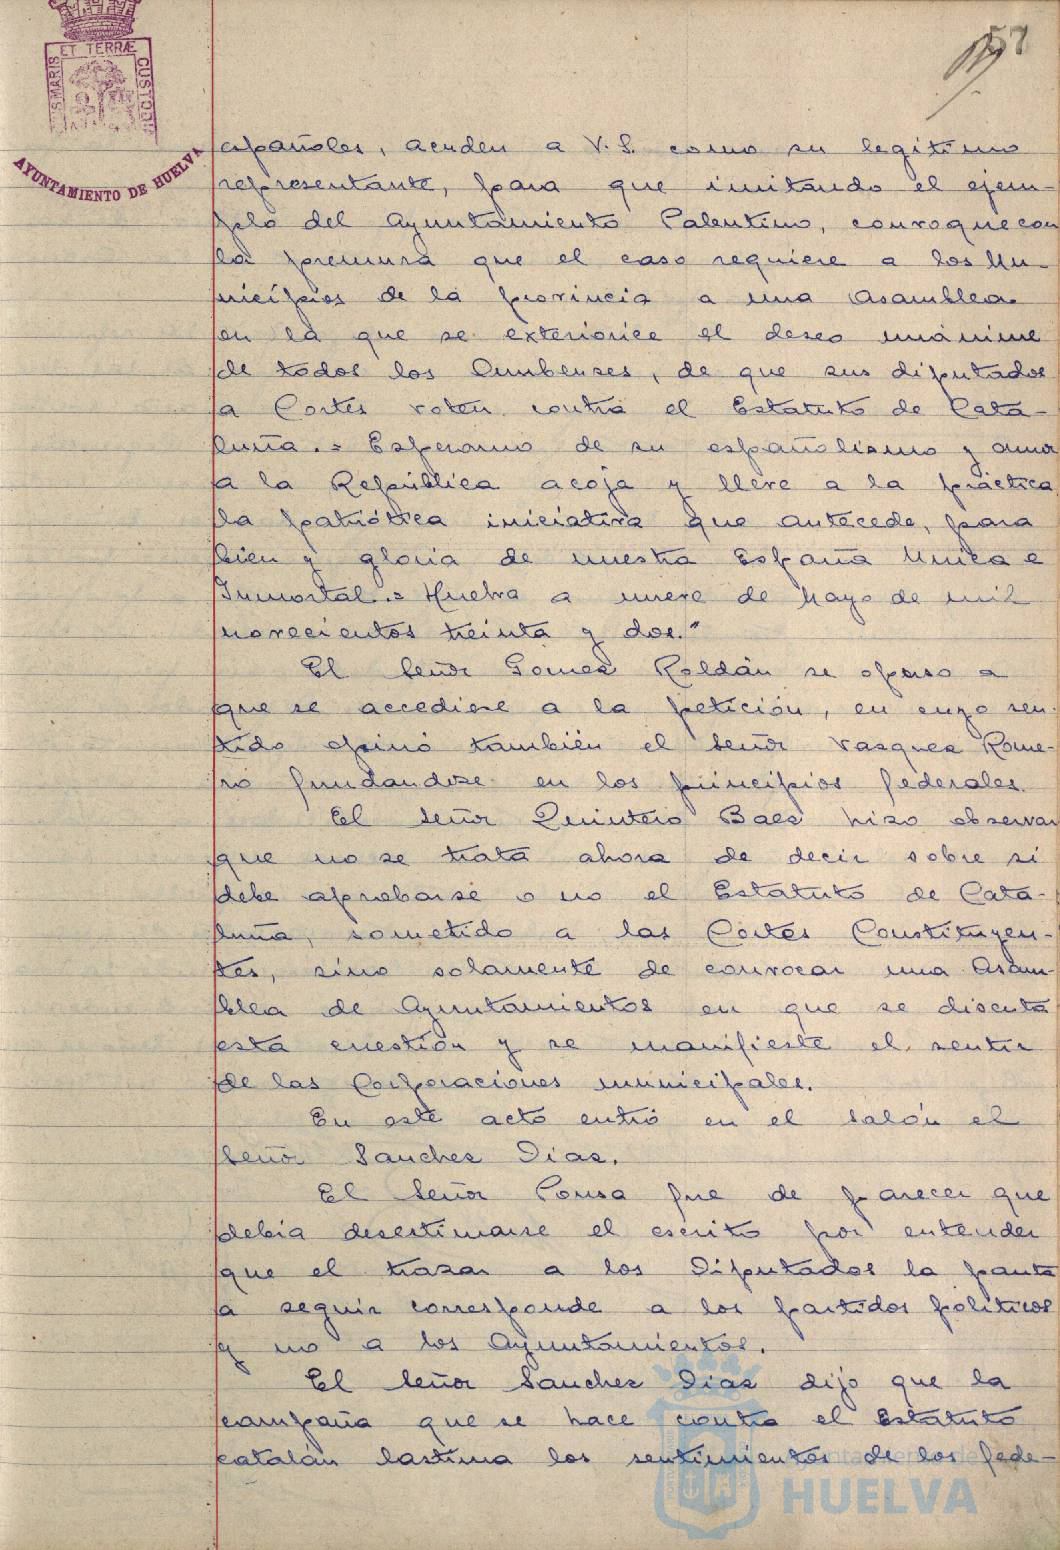 57
ET TERRÆ
MARIS
CUSTODI
AYUNTAMIENTO DE HUELVA
españoles, acuden a V.S. como su legítimo
representante, para que imitando el ejem-
plo del Ayuntamiento Palentino, convoque con
la premura que el caso requiere a los Mu-
nicipios de la provincia a una Asamblea
en la que se exteriorice el deseo unánime
de todos los Onubenses, de que sus diputados
a Cortes voten contra el Estatuto de Cata-
luña.= Esperamo de su españolismo y amor
a la República acoja y lleve a la práctica
la patriótica iniciativa que antecede, para
bien y gloria de nuestra España Unica e
Inmortal.= Huelva a nueve de Mayo de mil
novecientos treinta y dos."
El Señor Gomez Roldán se opuso a
que se accediese a la petición, en cuyo sen-
tido opinó también el Señor Vasquez Rome-
ro fundandose en los principios federales.
El Señor Quintero Baez hizo observar
que no se trata ahora de decir sobre si
debe aprobarse o no el Estatuto de Cata-
luña, sometido a las Cortes Constituyen-
tes, sino solamente de convocar una Asam-
blea de Ayuntamientos en que se discuta
esta cuestión y se manifieste el sentir
de las Corporaciones municipales.
En este acto entró en el salón el
Señor Sanchez Diaz.
El Señor Ponsa fue de parecer que
debía desestimarse el escrito por entender
que el trazar a los Diputados la pauta
a seguir corresponde a los partidos políticos
y no a los Ayuntamientos.
El Señor Sanchez Diaz dijo que la
campaña que se hace contra el Estatuto
catalán lastima los sentimientos de los fede-
Ayuntamiento de
HUELVA